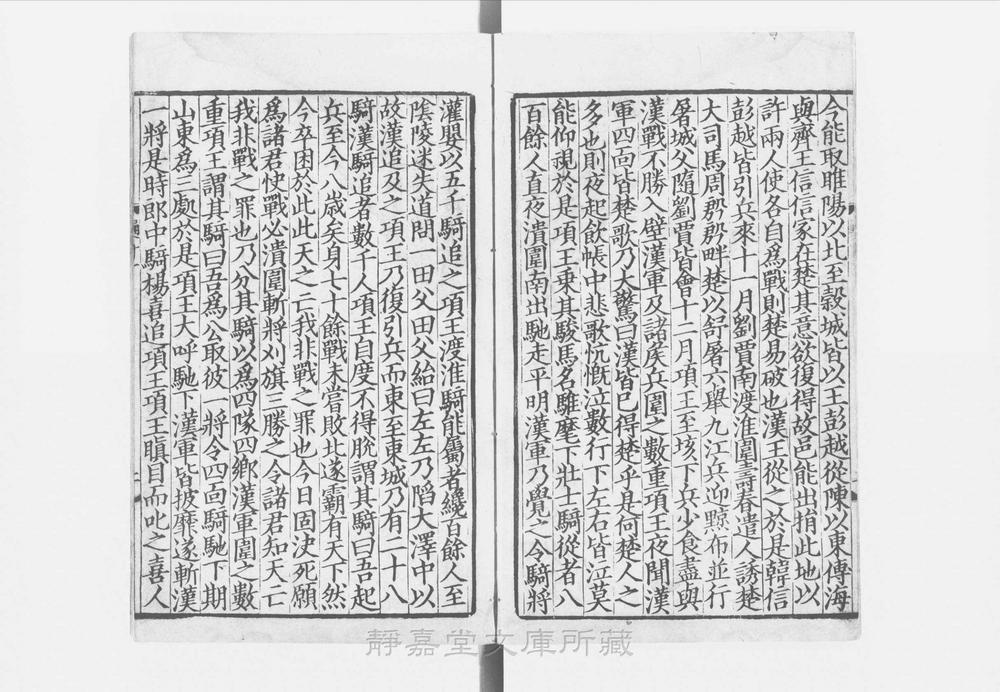 今能取睢陽以北至穀城皆以王彭越從陳以東傅海
與齊王信信家在楚其意欲復得故邑能出捐此地以
許兩人使各自爲戰則楚易破也漢王從之於是韓信
彭越皆引兵來十一月劉賈南渡淮圍壽春遣人誘楚
大司馬周殷殷畔楚以舒屠六舉九江兵迎黥布並行
屠城父隨劉賈皆會十二月項王至垓下兵少食盡與
漢戰不勝入壁漢軍及諸矦兵圍之數重項王夜聞漢
軍四面皆楚歌乃大驚曰漢皆已得楚乎是何楚人之
多也則夜起飲帳中悲歌忼慨泣數行下左右皆泣莫
能仰視於是項王乘其駿馬名騅麾下壯士騎從者八
百餘人直夜潰圍南出馳走平明漢軍乃覺之令騎將
灌嬰以五千騎追之項王渡淮騎能屬者纔百餘人至
陰陵迷失道問一田父田父紿曰左左乃陷大澤中以
故漢追及之項王乃復引兵而東至東城乃有二十八
騎漢騎追者數千人項王自度不得脫謂其騎曰吾起
兵至今八歲矣身七十餘戰未嘗敗北遂霸有天下然
今卒困於此此天之亡我非戰之罪也今日固決死願
爲諸君快戰必潰圍斬將刈旗三勝之令諸君知天亡
我非戰之罪也乃分其騎以爲四隊四鄉漢軍圍之數
重項王謂其騎曰吾爲公取彼一將令四面騎馳下期
山東爲三處於是項王大呼馳下漢軍皆披靡遂斬漢
一將是時郎中騎楊喜追項王項王瞋目而叱之喜人
靜嘉堂文庫所藏